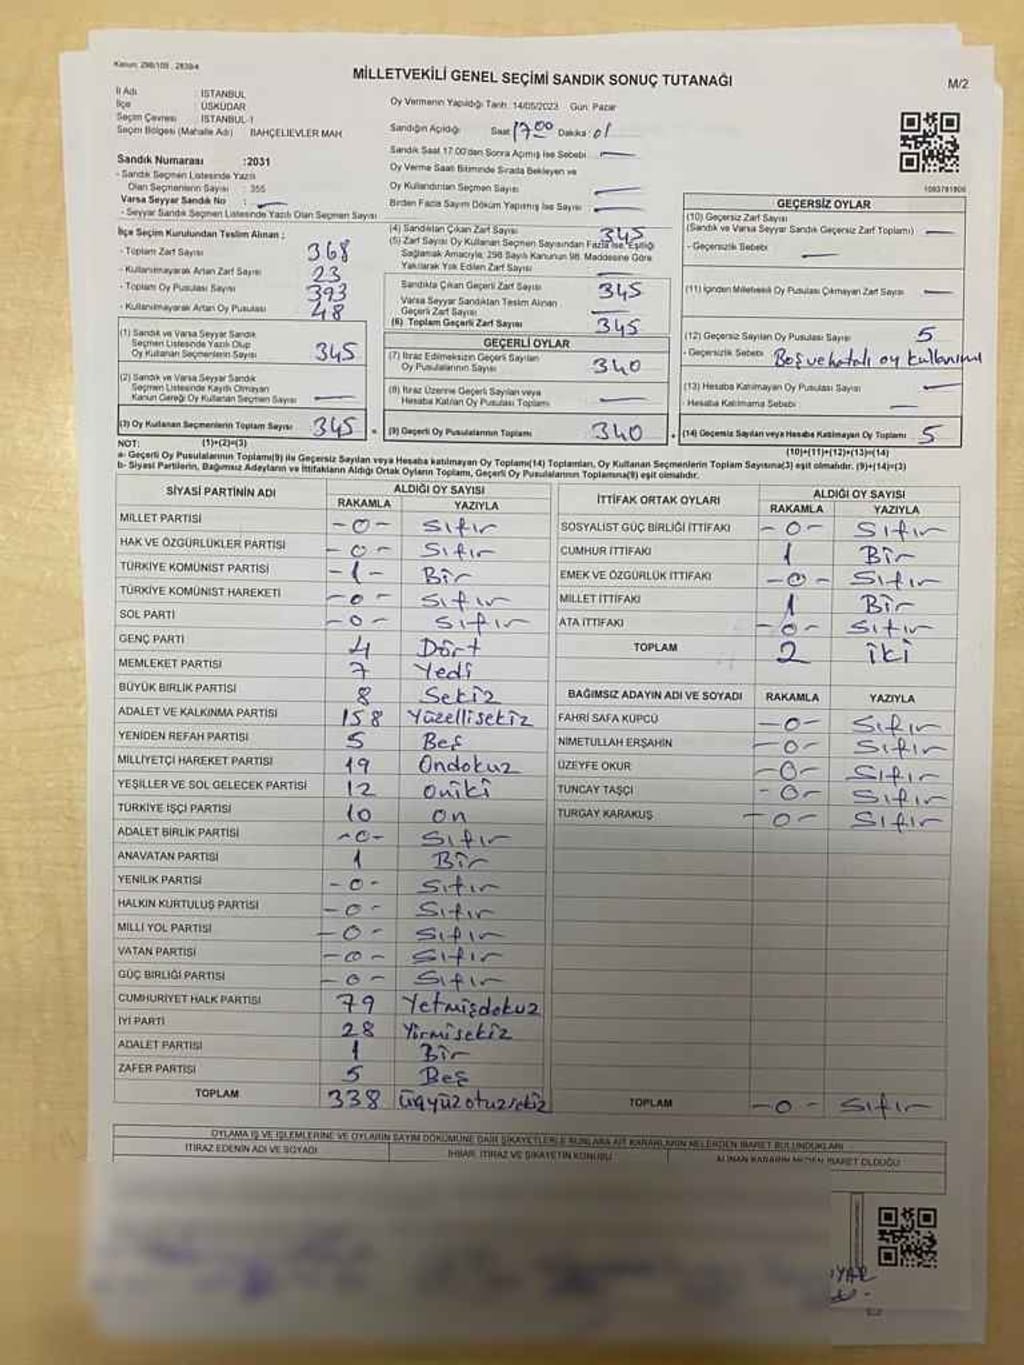 Kanun: 298/105 , 2839/4
MİLLETVEKİLİ GENEL SEÇİMİ SANDIK SONUÇ TUTANAĞI
M/2
İl Adı : İSTANBUL
İlçe : ÜSKÜDAR
Seçim Çevresi : İSTANBUL-1
Seçim Bölgesi (Mahalle Adı) BAHÇELİEVLER MAH
Sandık Numarası :2031
- Sandık Seçmen Listesinde Yazılı
Olan Seçmenlerin Sayısı : 355
Varsa Seyyar Sandık No : —
- Seyyar Sandık Seçmen Listesinde Yazılı Olan Seçmen Sayısı
Oy Vermenin Yapıldığı Tarih: 14/05/2023 Gün: Pazar
Sandığın Açıldığı Saat 17.00 Dakika : 01
Sandık Saat 17.00'dan Sonra Açılmış İse Sebebi —
Oy Verme Saati Bitiminde Sırada Bekleyen ve
Oy Kullandırılan Seçmen Sayısı —
Birden Fazla Sayım Döküm Yapılmış İse Sayısı —
1093781906
İlçe Seçim Kurulundan Teslim Alınan :
- Toplam Zarf Sayısı 368
- Kullanılmayarak Artan Zarf Sayısı 23
- Toplam Oy Pusulası Sayısı 393
- Kullanılmayarak Artan Oy Pusulası 48
(1) Sandık ve Varsa Seyyar Sandık
Seçmen Listesinde Yazılı Olup
Oy Kullanan Seçmenlerin Sayısı 345
(2) Sandık ve Varsa Seyyar Sandık
Seçmen Listesinde Kayıtlı Olmayan
Kanun Gereği Oy Kullanan Seçmen Sayısı —
(3) Oy Kullanan Seçmenlerin Toplam Sayısı 345
(4) Sandıktan Çıkan Zarf Sayısı 345
(5) Zarf Sayısı Oy Kullanan Seçmen Sayısından Fazla ise, Eşitliği
Sağlamak Amacıyla; 298 Sayılı Kanunun 98. Maddesine Göre
Yakılarak Yok Edilen Zarf Sayısı —
Sandıkta Çıkan Geçerli Zarf Sayısı 345
Varsa Seyyar Sandıktan Teslim Alınan
Geçerli Zarf Sayısı —
(6) Toplam Geçerli Zarf Sayısı 345
GEÇERLİ OYLAR
(7) İtiraz Edilmeksizin Geçerli Sayılan
Oy Pusulalarının Sayısı 340
(8) İtiraz Üzerine Geçerli Sayılan veya
Hesaba Katılan Oy Pusulası Toplamı —
= (9) Geçerli Oy Pusulalarının Toplamı 340
GEÇERSİZ OYLAR
(10) Geçersiz Zarf Sayısı
(Sandık ve Varsa Seyyar Sandık Geçersiz Zarf Toplamı) —
- Geçersizlik Sebebi —
(11) İçinden Milletvekili Oy Pusulası Çıkmayan Zarf Sayısı —
(12) Geçersiz Sayılan Oy Pusulası Sayısı 5
- Geçersizlik Sebebi Boş ve hatalı oy kullanımı
(13) Hesaba Katılmayan Oy Pusulası Sayısı —
- Hesaba Katılmama Sebebi —
+ (14) Geçersiz Sayılan veya Hesaba Katılmayan Oy Toplamı 5
NOT: (1)+(2)=(3)
(10)+(11)+(12)+(13)=(14)
a- Geçerli Oy Pusulalarının Toplamı(9) ile Geçersiz Sayılan veya Hesaba katılmayan Oy Toplamı(14) Toplamları, Oy Kullanan Seçmenlerin Toplam Sayısına(3) eşit olmalıdır. (9)+(14)=(3)
b- Siyasi Partilerin, Bağımsız Adayların ve İttifakların Aldığı Ortak Oyların Toplamı, Geçerli Oy Pusulalarının Toplamına(9) eşit olmalıdır.
SİYASİ PARTİNİN ADI ALDIĞI OY SAYISI
RAKAMLA YAZIYLA
MİLLET PARTİSİ -0- Sıfır
HAK VE ÖZGÜRLÜKLER PARTİSİ -0- Sıfır
TÜRKİYE KOMÜNİST PARTİSİ -1- Bir
TÜRKİYE KOMÜNİST HAREKETİ -0- Sıfır
SOL PARTİ -0- Sıfır
GENÇ PARTİ 4 Dört
MEMLEKET PARTİSİ 7 Yedi
BÜYÜK BİRLİK PARTİSİ 8 Sekiz
ADALET VE KALKINMA PARTİSİ 158 Yüzellisekiz
YENİDEN REFAH PARTİSİ 5 Beş
MİLLİYETÇİ HAREKET PARTİSİ 19 Ondokuz
YEŞİLLER VE SOL GELECEK PARTİSİ 12 oniki
TÜRKİYE İŞÇİ PARTİSİ 10 on
ADALET BİRLİK PARTİSİ -0- Sıfır
ANAVATAN PARTİSİ 1 Bir
YENİLİK PARTİSİ -0- Sıfır
HALKIN KURTULUŞ PARTİSİ -0- Sıfır
MİLLİ YOL PARTİSİ -0- Sıfır
VATAN PARTİSİ -0- Sıfır
GÜÇ BİRLİĞİ PARTİSİ -0- Sıfır
CUMHURİYET HALK PARTİSİ 79 Yetmişdokuz
İYİ PARTİ 28 Yirmisekiz
ADALET PARTİSİ 1 Bir
ZAFER PARTİSİ 5 Beş
TOPLAM 338 üçyüzotuzsekiz
İTTİFAK ORTAK OYLARI ALDIĞI OY SAYISI
RAKAMLA YAZIYLA
SOSYALİST GÜÇ BİRLİĞİ İTTİFAKI -0- Sıfır
CUMHUR İTTİFAKI 1 Bir
EMEK VE ÖZGÜRLÜK İTTİFAKI -0- Sıfır
MİLLET İTTİFAKI 1 Bir
ATA İTTİFAKI -0- Sıfır
TOPLAM 2 iki
BAĞIMSIZ ADAYIN ADI VE SOYADI RAKAMLA YAZIYLA
FAHRİ SAFA KÜPCÜ -0- Sıfır
NİMETULLAH ERŞAHİN -0- Sıfır
ÜZEYFE OKUR -0- Sıfır
TUNCAY TAŞÇI -0- Sıfır
TURGAY KARAKUŞ -0- Sıfır
TOPLAM -0- Sıfır
OYLAMA İŞ VE İŞLEMLERİNE VE OYLARIN SAYIM DÖKÜMÜNE DAİR ŞİKAYETLERLE BUNLARA AİT KARARLARIN NELERDEN İBARET BULUNDUKLARI
İTİRAZ EDENİN ADI VE SOYADI
İHBAR, İTİRAZ VE ŞİKAYETİN KONUSU
ALINAN KARARIN NEDEN İBARET OLDUĞU